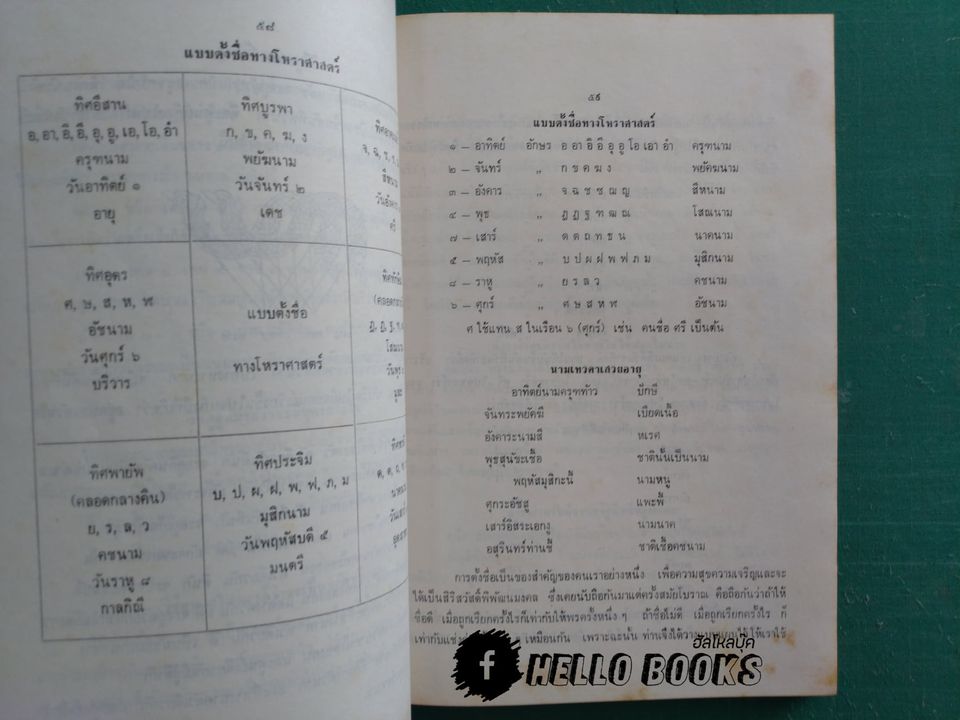 ๕๘
แบบตั้งชื่อทางโหราศาสตร์
ทิศอีสาน
อ, อา, อิ, อี, อุ, อู, เอ, โอ, อำ
ครุฑนาม
วันอาทิตย์ ๑
อายุ
ทิศบูรพา
ก, ข, ค, ฆ, ง
พยัฆนาม
วันจันทร์ ๒
เดช
จ, ฉ, ช,
ศรี
ทิศอุดร
ศ, ษ, ส, ห, ฬ
อัชนาม
วันศุกร์ ๖
บริวาร
แบบตั้งชื่อ
ทางโหราศาสตร์
(คลอดกลาง
ทิศพายัพ
(คลอดกลางคืน)
ย, ร, ล, ว
คชนาม
วันราหู ๘
กาลกิณี
ทิศประจิม
บ, ป, ผ, ฝ, พ, ฟ, ภ, ม
มุสิกนาม
วันพฤหัสบดี ๕
มนตรี
๕๙
แบบตั้งชื่อทางโหราศาสตร์
๑ – อาทิตย์ อักษร อ อา อิ อี อุ อู โอ เอา อำ ครุฑนาม
๒ – จันทร์ ,, ก ข ค ฆ ง พยัคฆนาม
๓ – อังคาร ,, จ ฉ ช ซ ฌ ญ สีหนาม
๔ – พุธ ,, ฎ ฏ ฐ ฑ ฒ ณ โสณนาม
๗ – เสาร์ ,, ด ต ถ ท ธ น นาคนาม
๕ – พฤหัส ,, บ ป ผ ฝ พ ฟ ภ ม มุสิกนาม
๘ – ราหู ,, ย ร ล ว คชนาม
๖ – ศุกร์ ,, ศ ษ ส ห ฬ อัชนาม
ศ ใช้แทน ส ในเรือน ๖ (ศุกร์) เช่น คนชื่อ ศรี เป็นต้น
นามเทวดาเสวยอายุ
อาทิตย์นามครุฑท้าว ปักษี
จันทระพยัคฆี เบียดเนื้อ
อังคาระนามสี หเรศ
พุธสุนัขะเชื้อ ชาตินั้นเป็นนาม
พฤหัสมุสิกะนี้ นามหนู
ศุกระอัชสู แพะพี้
เสาร์อิสระเอกงู นามนาค
อสุรินทร์ท่านชี้ ชาติเชื้อคชนาม
การตั้งชื่อเป็นของสำคัญของคนเราอย่างหนึ่ง เพื่อความสุขความเจริญและจะ
ได้เป็นสิริสวัสดิ์พิพัฒนมงคล ซึ่งเคยนับถือกันมาแต่ครั้งสมัยโบราณ คือถือกันว่าถ้าให้
ชื่อดี เมื่อถูกเรียกครั้งไรก็เท่ากับให้พรครั้งหนึ่ง ๆ ถ้าชื่อไม่ดี เมื่อถูกเรียกครั้งไร ก็
เท่ากับแช่ง เหมือนกัน เพราะฉะนั้น ท่านจึงได้ ให้เราใช้
ฮัลโหลบุ๊ค
f HELLO BOOKS